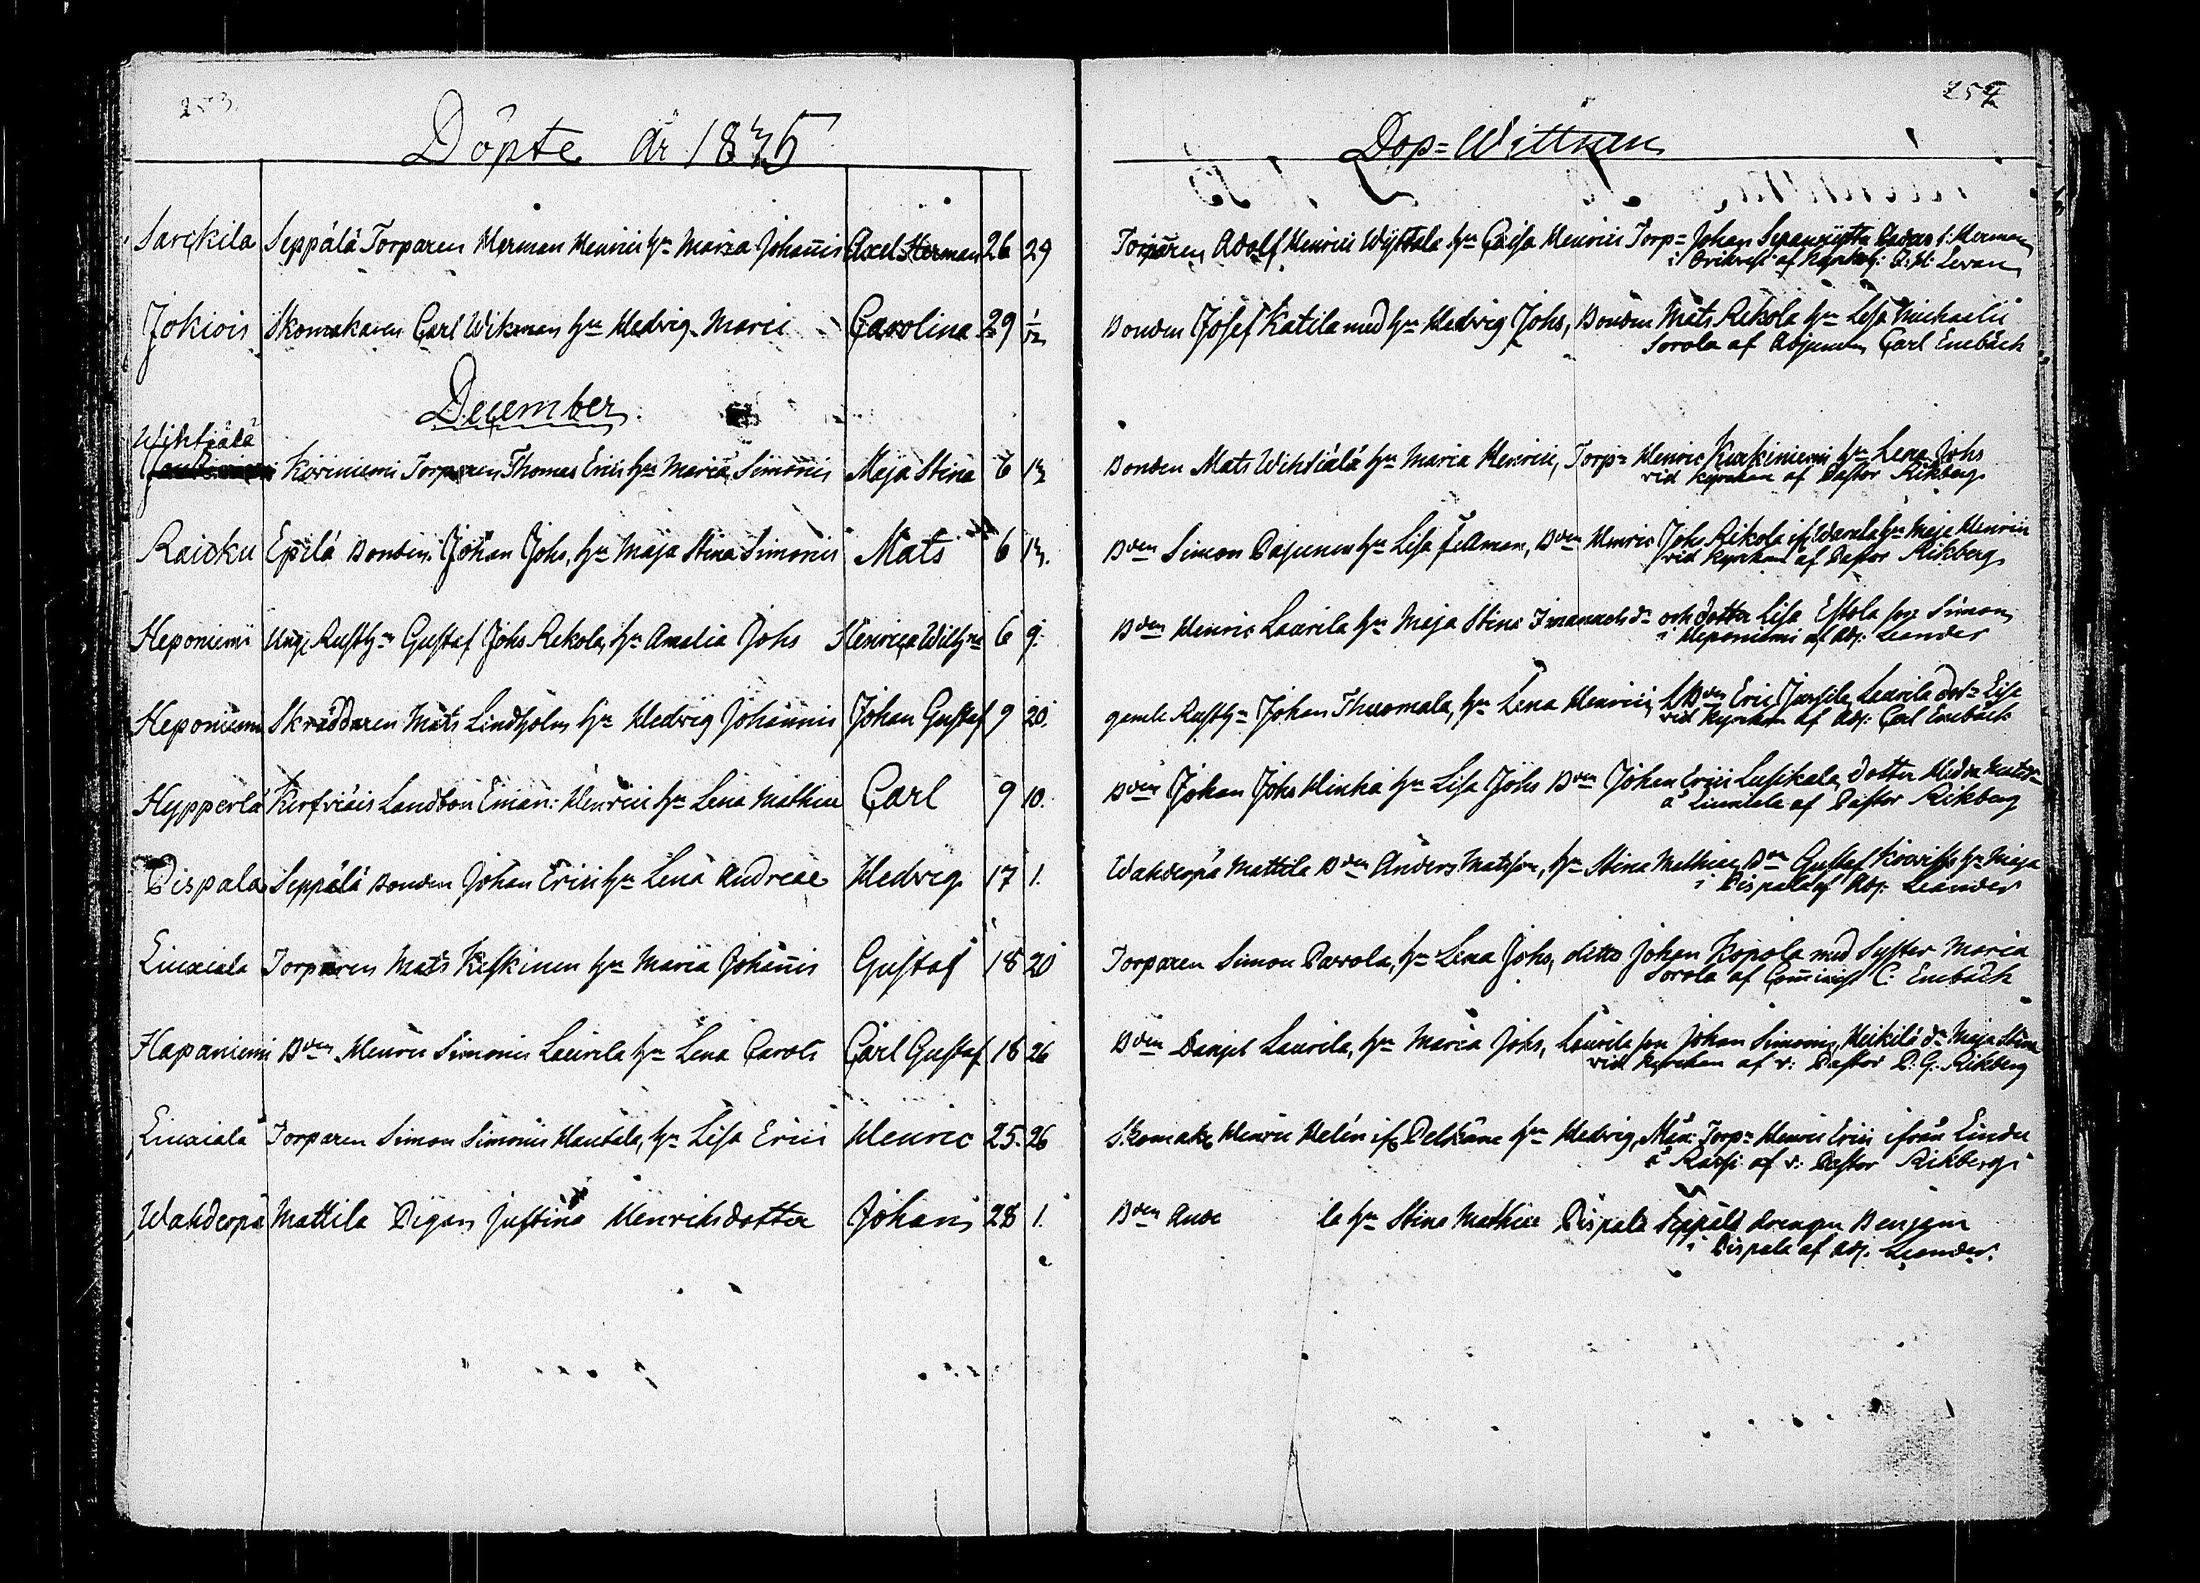 253
Döpte år 1835
Sarckila Seppälä Torparen Herman Henrici hru Maria Johannis Axel Herman 26 29
Jokiois Skomakaren Carl Wikman hru Hedvig Marci Carolina 29 1/12
December
Wihtiälä
Koriniemi Torparen Thomas Erici hru Maria Simonis Maja Stina 6 13
Raicku Epilä Bonden Johan Johs, hru Maja Stina Simonis Mats 6 13.
Heponiemi Unge Rusth:n Gustaf Johs Rekola, hru Amalia Johs Henrica Wilh:na 6 9.
Heponiemi Skräddaren Mats Lindholm hru Hedvig Johannis Johan Gustaf 9 20.
Hypperlä Landbon Eman: Henrici hru Lena Mathiæ Carl 9 10.
Pispala Seppälä Bonden Johan Erici hru Lena Andreæ Hedvig 17 1.
Liuxiala Torparen Mats Kiskinen hru Maria Johannis Gustaf 18 20
Hapaniemi Bden Henric Simonis Laurila hru Lena Caroli Carl Gustaf 18 26
Liuxiala Torparen Simon Simonis Hautala, hru Lisa Erici Henric 25. 26
Wahderpä Mattila Pigan Justina Henriksdotter Johan 28 1.
254
Dop=Wittnen
Torparen Adolf Henrici hru Cajsa Henrici Torp= Johan Herman
af Levan
Bonden Josef Katila med hru Hedvig Johs, Bonden Mats Rekola hru Lisa Michaelis
Sorola af Adjuncten Carl Enebäck
Bonden Mats Wihdiälä hru Maria Henrici, Torp= Henric Kurkiniemi hru Lena Johs
vid kyrckan af Pastor Rikberg
Bden Simon Pajunen hru Lisa Fellman, Bden Henric Johs Rikola hru Maja Henrici
vid kyrckan af Pastor Rikberg
Bden Henric Laurila hru Maja Stina och dotter Lisa Estola son Simon
i Heponiemi af Adj: Leander
gamle Rusth:n Johan Thuomala, hru Lena Henrici, Bden Eric Laurila dotr Lisa
vid kyrckan af Adj: Carl Enebäck
Bden Johan Johs Hinha hru Lisa Johs Bden Johan Erici dotter
å Liuxiala af Pastor Rikberg
Wahderpä Mattila Bden Anders Matsson, hru Stina Mathiæ, Bden Gustaf hru Maja
i Pispala af Adj. Leander
Torparen Simon Parrola, hru Lena Johs, ditto Johan Kopola med Syster Maria
Sorola af C: Enebäck
Bden Daniel Laurila, hru Maria Johs, Laurila son Johan Simonis, Heikilä dr Maja Stina
vid kyrckan af v: Pastor P. G. Rikberg
Skomak: Henric Helén ifr Pelkäne hru Hedvig, Torp= Henric Erici ifrån
å af v: Pastor Rikberg
Bden Ande la hru Stina Mathiæ Pispala Seppälä drengen Benjam
i Pispala af Adj. Leander.